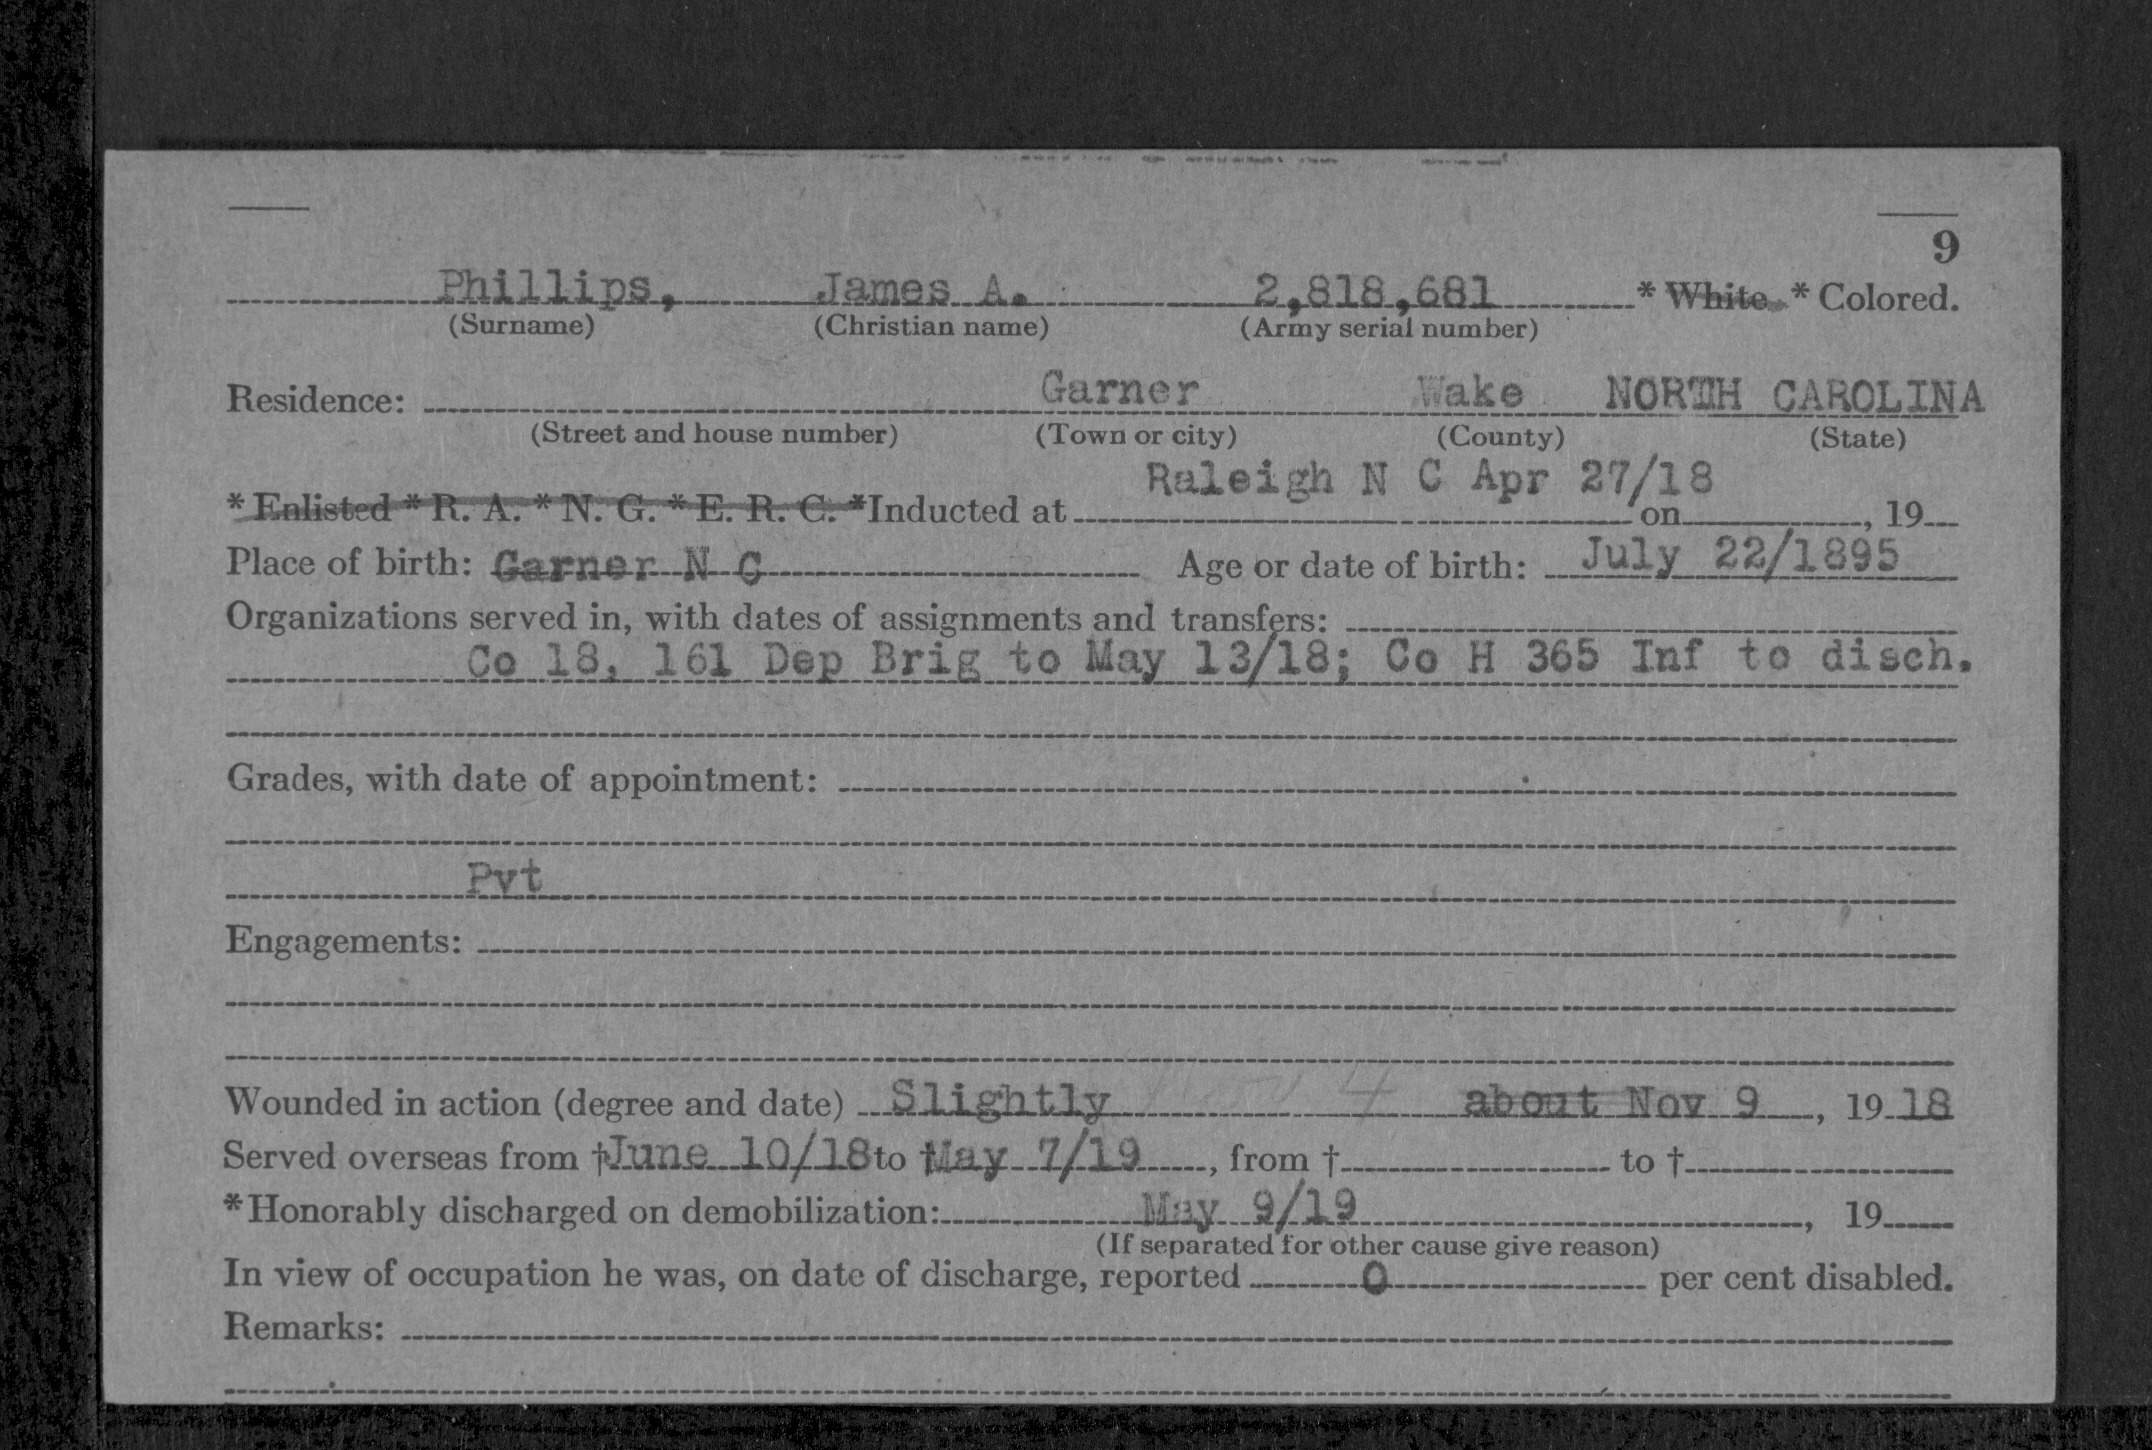 9
Phillips, James A. 2,818,681 * White * Colored.
(Surname) (Christian name) (Army serial number)
Residence: Garner Wake NORTH CAROLINA
(Street and house number) (Town or city) (County) (State)
Raleigh N C Apr 27/18
* Enlisted * R. A. * N. G. * E. R. C. *Inducted at on , 19
Place of birth: Garner N C Age or date of birth: July 22/1895
Organizations served in, with dates of assignments and transfers:
Co 18, 161 Dep Brig to May 13/18; Co H 365 Inf to disch.
Grades, with date of appointment:
Pvt
Engagements:
Wounded in action (degree and date) Slightly about Nov 9 , 19 18
Served overseas from † June 10/18 to † May 7/19 , from † to †
*Honorably discharged on demobilization: May 9/19 , 19
(If separated for other cause give reason)
In view of occupation he was, on date of discharge, reported 0 per cent disabled.
Remarks: